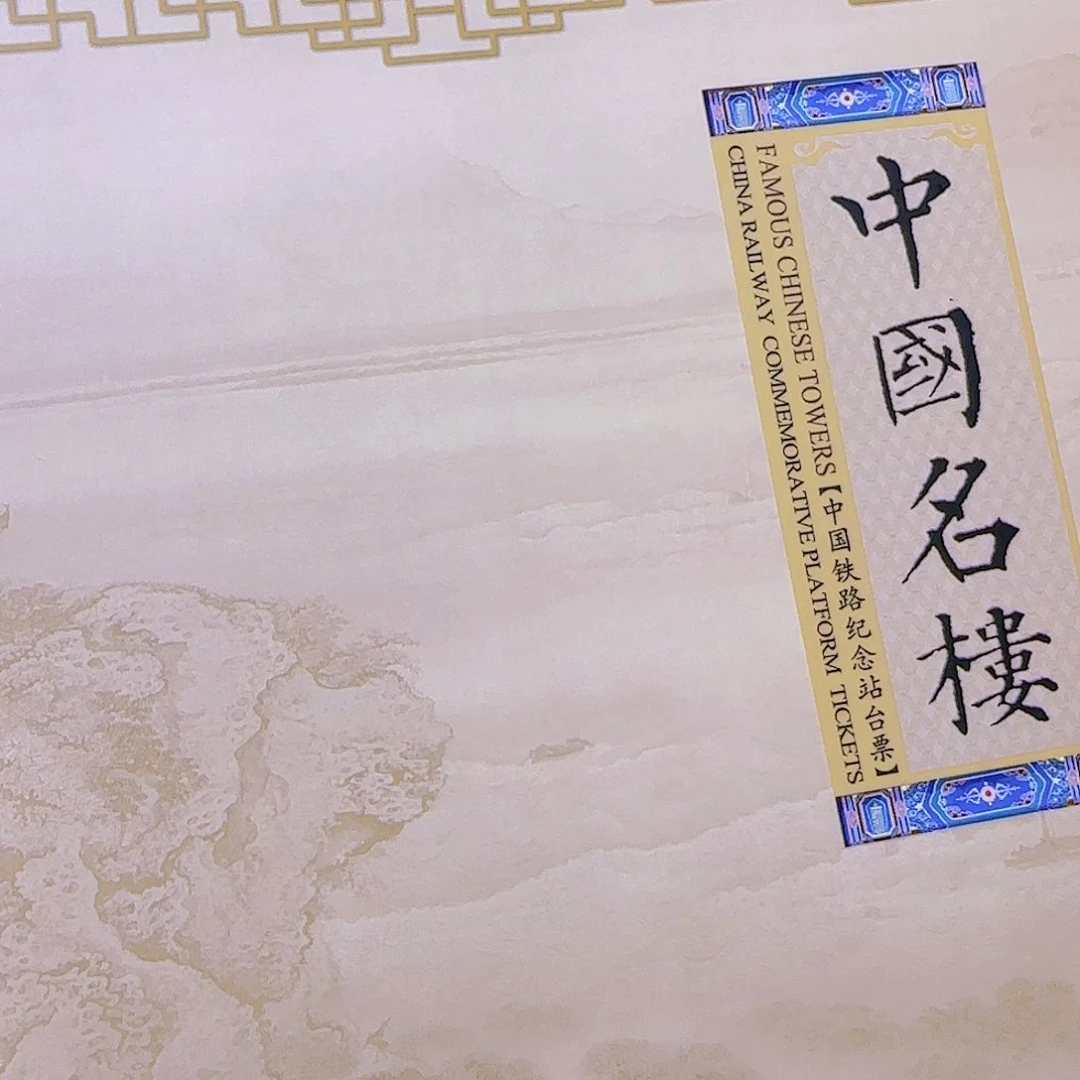 中國名樓
【中国铁路纪念站台票】
FAMOUS CHINESE TOWERS
CHINA RAILWAY COMMEMORATIVE PLATFORM TICKETS